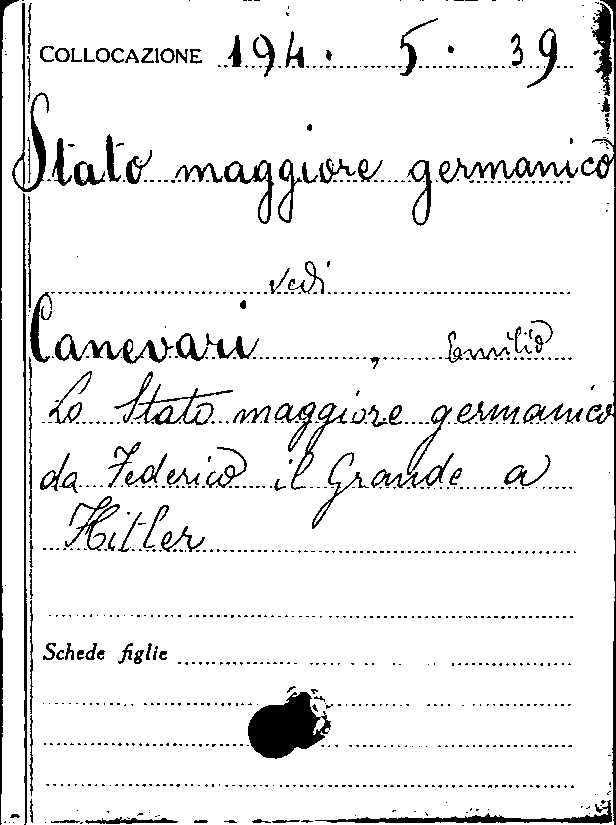 COLLOCAZIONE 194. 5. 39
Stato maggiore germanico
vedi
Canevari, Emilio
Lo Stato maggiore germanico
da Federico il Grande a
Hitler
Schede figlie